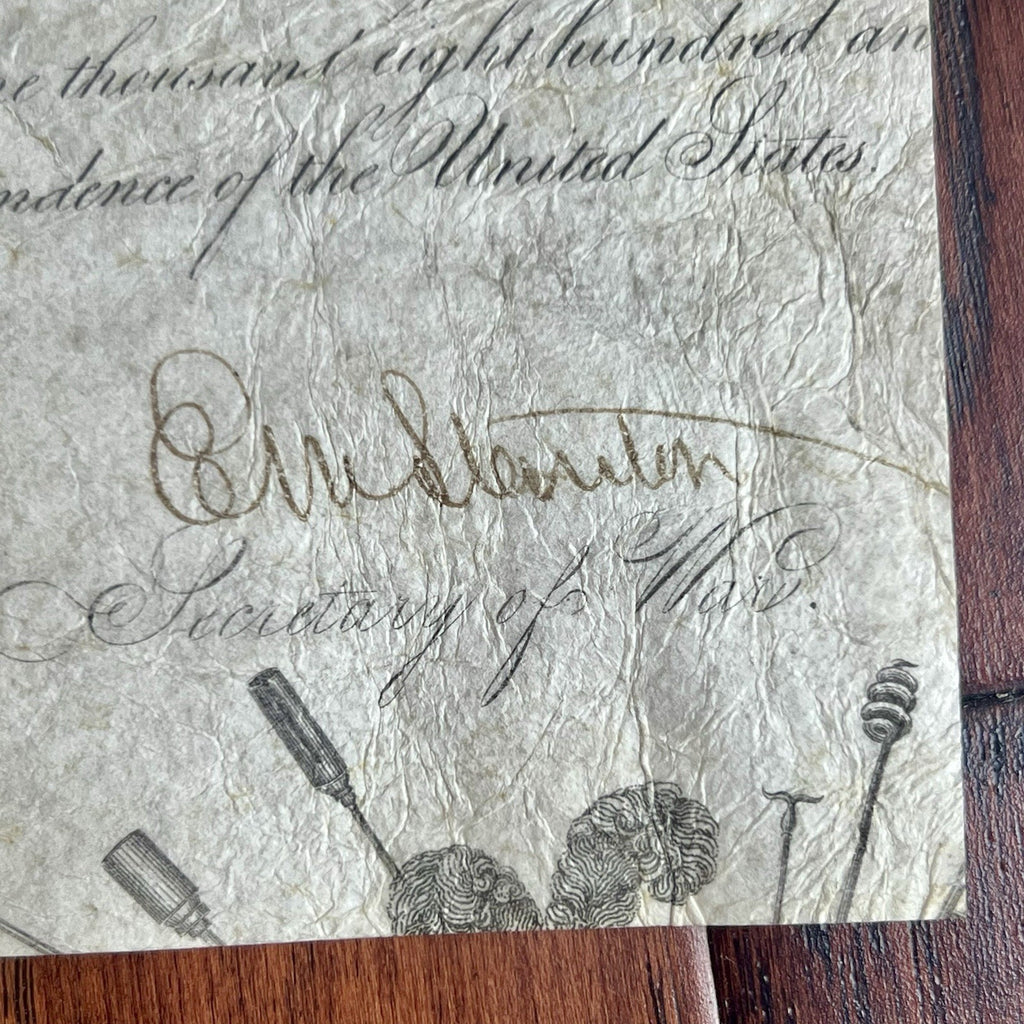 ne thousand eight hundred an
ndence of the United States.
Edwin M Stanton
Secretary of War.